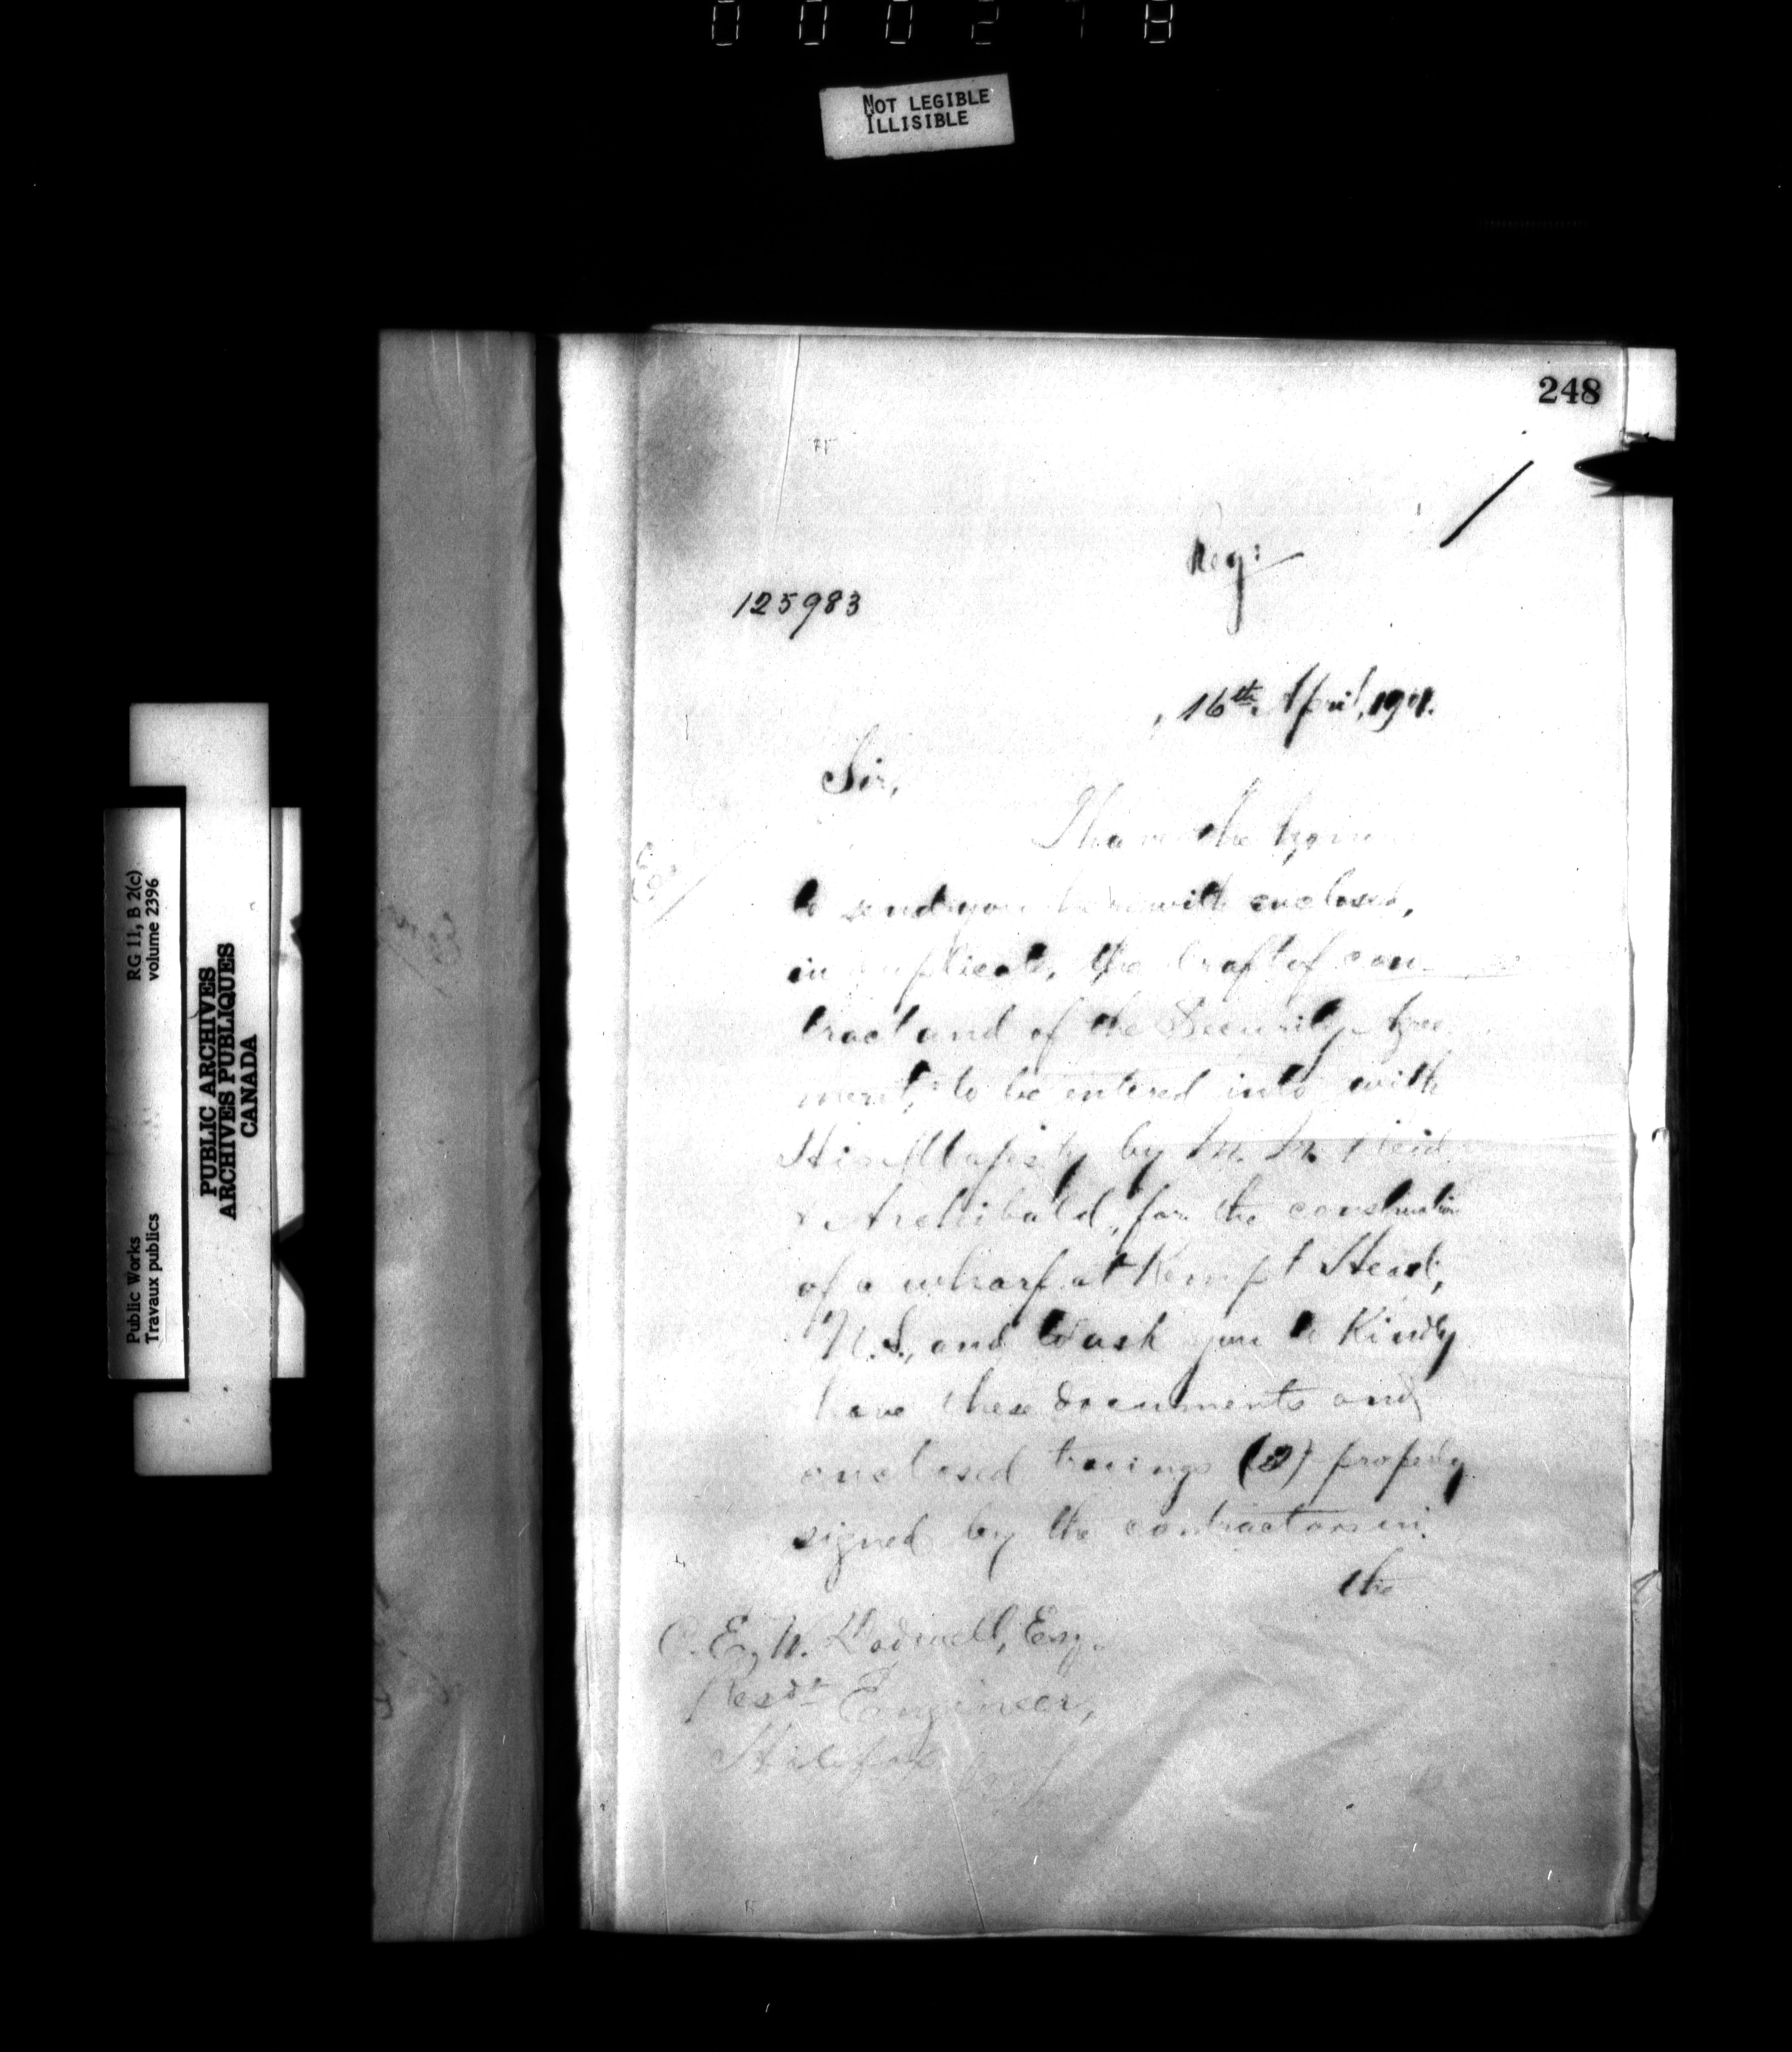 000278
NOT LEGIBLE
ILLISIBLE
248
Reg:
125983
16th April, 1901.
Sir,
I have the honor
to send you herewith enclosed,
in duplicate, the draft of con-
tract and of the Security Agree-
ment, to be entered into with
His Majesty by M. M. Reid
& Archibald, for the construction
of a wharf at Kempt Head,
N.S., and to ask you to kindly
have these documents and
enclosed tracings (2) properly
signed by the contractors in
the
C. E. W. Dodwell, Esq.
Resdt Engineer,
Halifax
RG 11, B 2(c)
volume 2396
PUBLIC ARCHIVES
ARCHIVES PUBLIQUES
CANADA
Public Works
Travaux publics